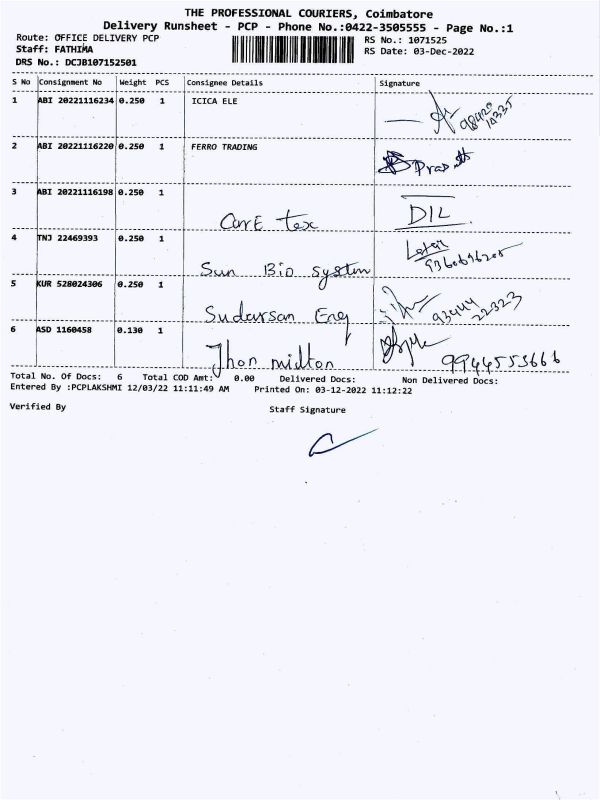 THE PROFESSIONAL COURIERS, Coimbatore
Delivery Runsheet - PCP - Phone No.:0422-3505555 - Page No.:1
Route: OFFICE DELIVERY PCP RS No.: 1071525
Staff: FATHIMA RS Date: 03-Dec-2022
DRS No.: DCJB107152501
S No Consignment No Weight PCS Consignee Details Signature
1 ABI 20221116234 0.250 1 ICICA ELE
2 ABI 20221116220 0.250 1 FERRO TRADING
3 ABI 20221116198 0.250 1
Care tex DIL
4 TNJ 22469393 0.250 1
Sun Bio System
5 KUR 528024306 0.250 1
Sudarsan Eng 93444 22323
6 ASD 1160458 0.130 1
Jhon milton 9944555666
Total No. Of Docs: 6 Total COD Amt: 0.00 Delivered Docs: Non Delivered Docs:
Entered By :PCPLAKSHMI 12/03/22 11:11:49 AM Printed On: 03-12-2022 11:12:22
Verified By Staff Signature